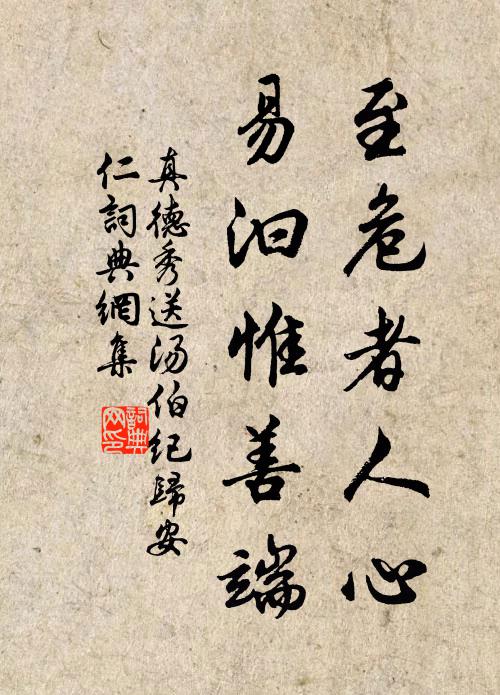 至危者人心
易汩惟善端
真德秀送汤伯纪歸安
仁詞典網集
詞典
网印